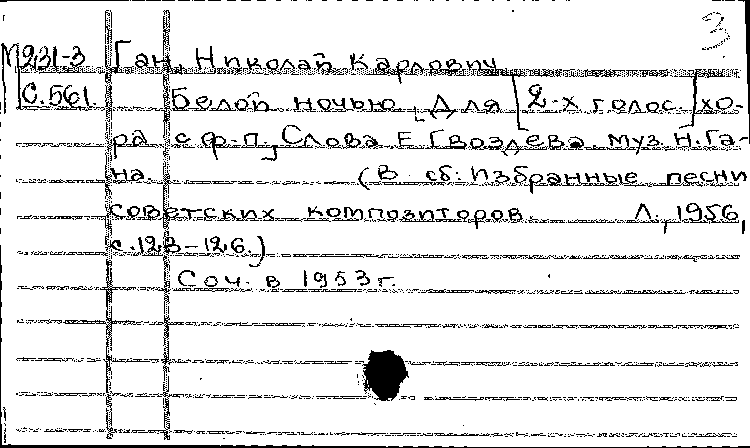 3
М931-3 Ган, Николай Карлович
С.561. Белой ночью [Для [2-х голос.] хо-
ра с ф-п.] Слова Е. Гвоздева муз. Н. Га-
на. (В сб: Избранные песни
советских композиторов. Л., 1956,
с.123-126.)
Соч. в 1953 г.